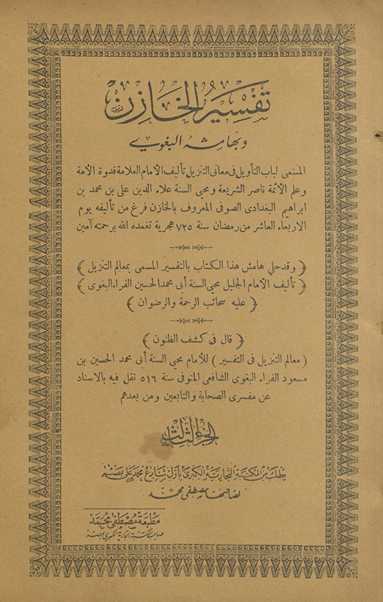 تفسير الخازن
وبهامشه البغوي
المسمى لباب التأويل فى معانى التنزيل تأليف الامام العلامة قدوة الامة
وعلم الأئمة ناصر الشريعة ومحى السنة علاء الدين على بن محمد بن
ابراهيم البغدادى الصوفى المعروف بالخازن فرغ من تأليفه يوم
الاربعاء العاشر من رمضان سنة ٧٢٥ هجرية تغمده الله برحمته آمين
( وقد حلى هامش هذا الكتاب بالتفسير المسمى بمعالم التنزيل )
( تأليف الامام الجليل محى السنة أبى محمد الحسين الفراء البغوى )
( عليه سحائب الرحمة والرضوان )
( قال فى كشف الظنون )
( معالم التنزيل فى التفسير ) للامام محى السنة أبى محمد الحسين بن
مسعود الفراء البغوى الشافعى المتوفى سنة ٥١٦ نقل فيه بالاسناد
عن مفسرى الصحابة والتابعين ومن بعدهم
الجزء الثالث
يطلب من المكتبة التجارية الكبرى بأول شارع محمد على بمصر
لصاحبها مصطفى محمد
مطبعة مصطفى محمد
صاحب المكتبة التجارية الكبرى بمصر